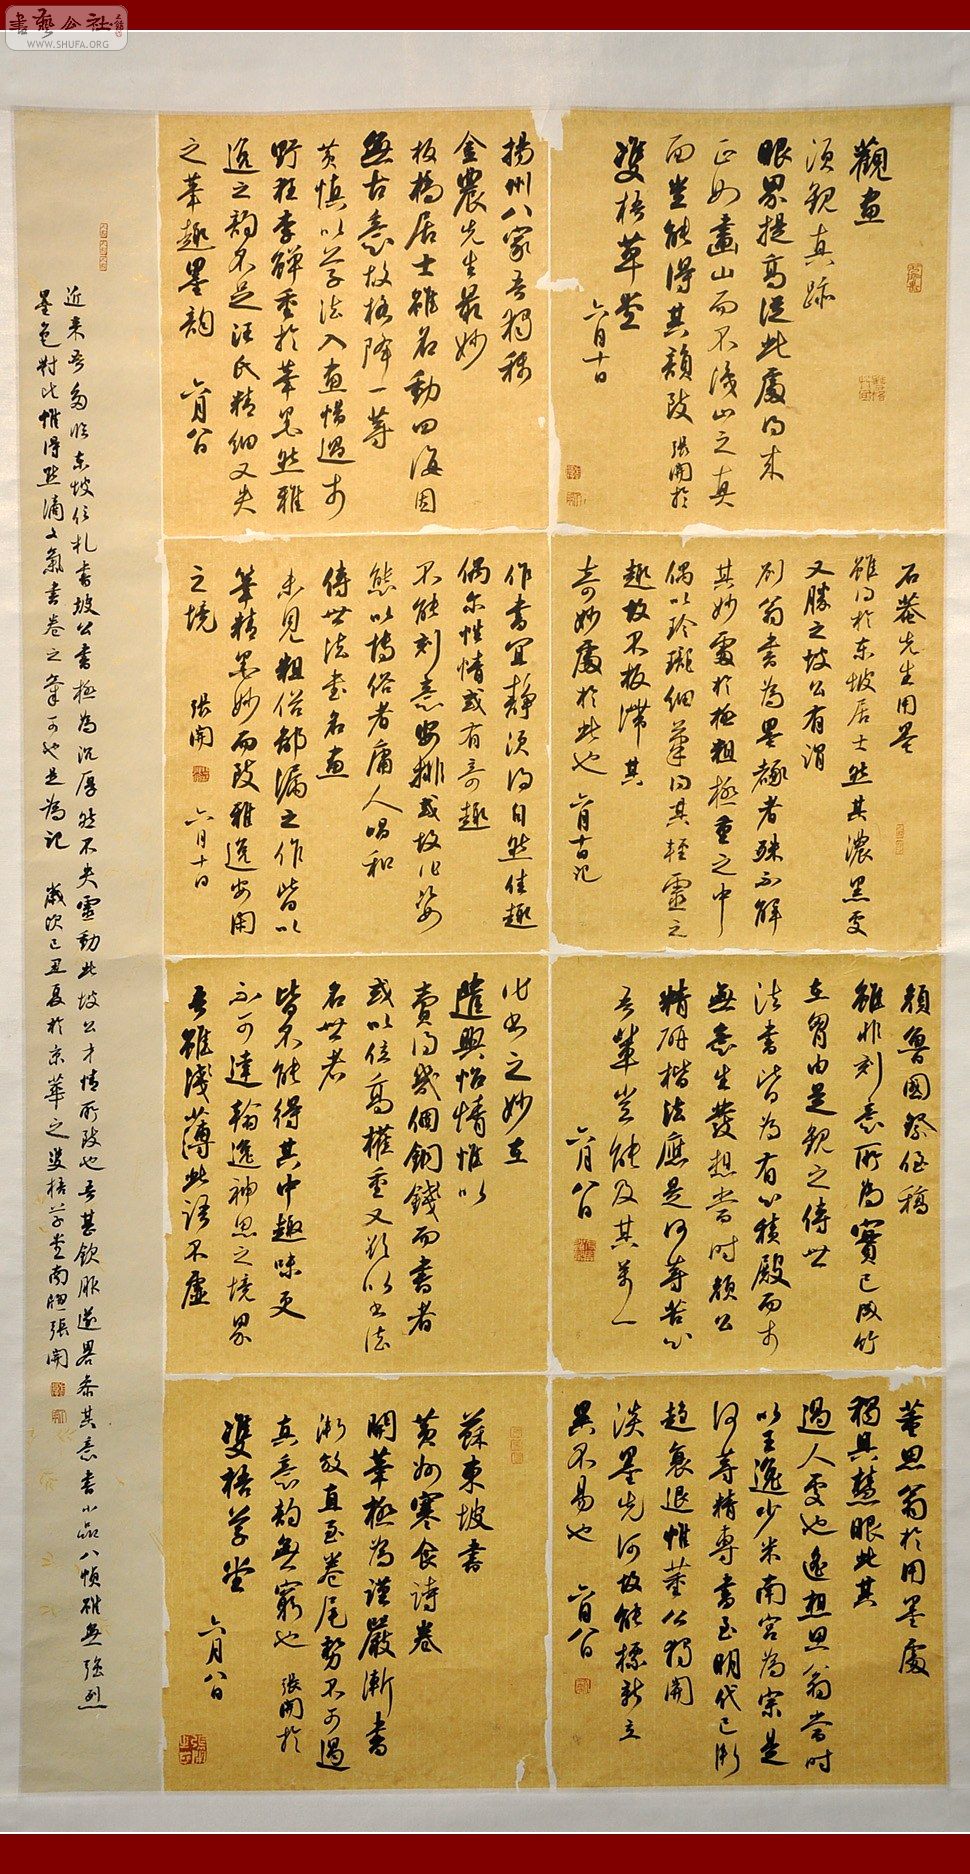 書藝公社
WWW.SHUFA.ORG
觀畫
須觀真跡
眼界提高從此處得來
正如畫山而不識山之真
面豈能得其韻致 張開於
雙梧草堂
六月十日
揚州八家吾獨稱
金農先生最妙
板橋居士雖名動四海因
無古意故格降一等
黃慎以草法入畫惜過于
野狂李觶重於筆墨然雅
逸之韵不足汪氏精細又失
之筆趣墨韵 六月八日
石菴先生用墨
雖得於東坡居士然其濃墨處
又勝之坡公有謂
劉翁書為墨豬者殊不解
其妙處於極粗極重之中
偶以玲瓏細筆得其輕靈之
趣故不板滯其
奇妙處於此也 六月十日記
作書宜靜須得自然佳趣
偶尔性情或有奇趣
不能刻意安排或故作姿
態以博俗者庸人唱和
傳世法書名畫
未見粗俗鄙漏之作皆以
筆精墨妙而致雅逸安閑
之境 張開 六月十日
顏魯國祭侄稿
雖非刻意所為實已成竹
在胸由是觀之傳世
法書皆為有心積殿而于
無意生發想當時顏公
精研楷法應是何等苦心
吾輩豈能及其萬一
六月八日
作書之妙在
遣興怡情惟以
賣得幾個銅錢而書者
或以位高權重又欲以書法
名世者
皆不能得其中趣味更
不可達翰逸神思之境界
吾雖淺薄此語不虛
董思翁於用墨處
獨具慧眼此其
過人處也遙想思翁當時
以王逸少米南宮為宗是
何等精專書至明代已漸
趨衰退惟董公獨開
淡墨先河故能標新立
異不易也 六月八日
蘇東坡書
黃州寒食詩卷
開筆極為謹嚴漸書
漸放直至卷尾勢不可遏
真意韵無窮也 張開於
雙梧草堂
六月八日
近來吾多臨東坡信札書坡公書極為沉厚然不失靈動此坡公才情所致也吾甚欽服遂略參其意書小品八幀雖無強烈
墨色對比惟得點滴文氣書卷之氣可也是為記 歲次己丑夏於京華之雙梧草堂南窗張開